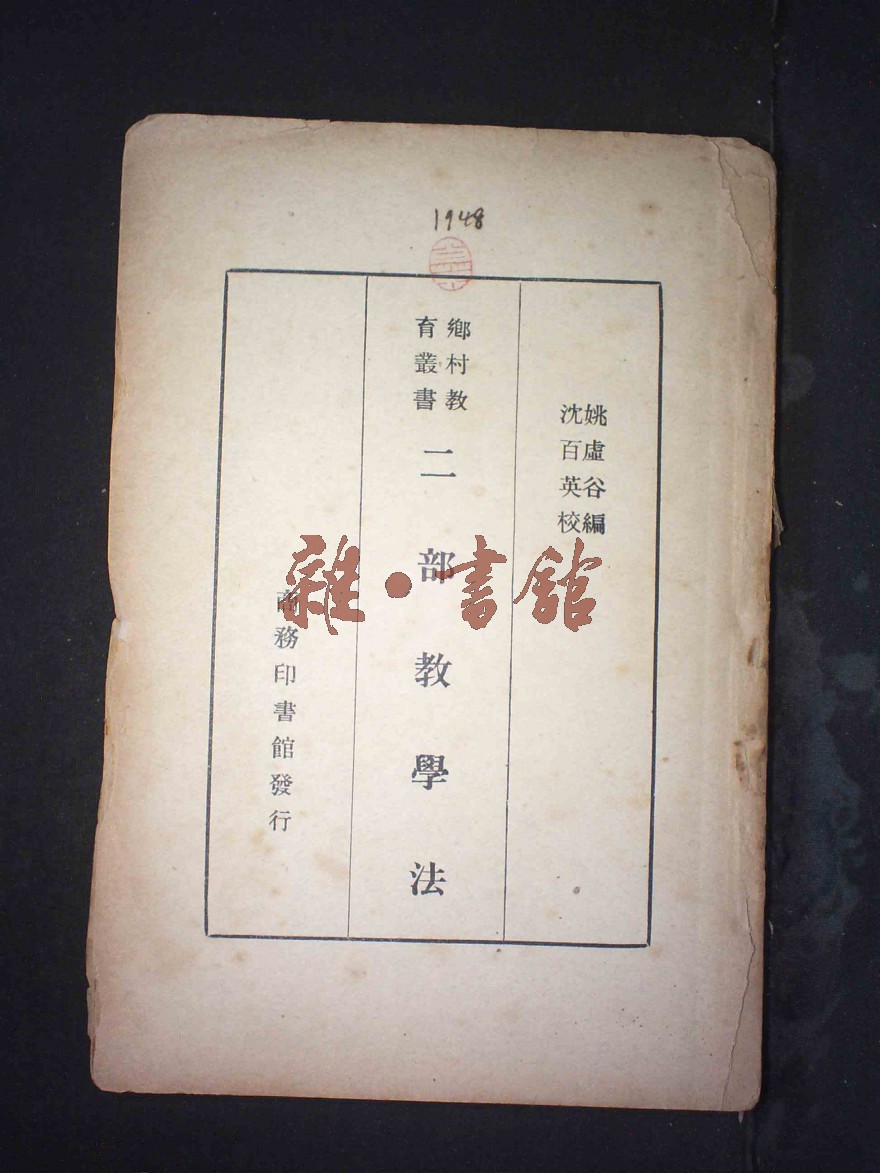 1948
姚虛谷編
沈百英校
鄉村教
育叢書
二部教學法
商務印書館發行
雜·書館